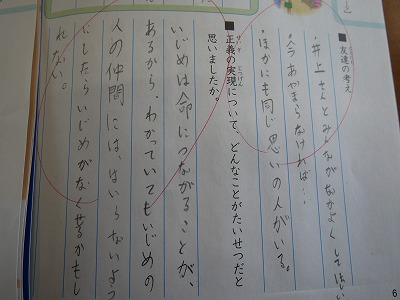 ■友達の考え
・井上さんとみんながなかよくしてほしい
・今あやまらなければ…
・ほかにも同じ思いの人がいる。
■正義の実現について、どんなことがたいせつだと
思いましたか。
いじめは命につながることが、
あるから、わかっていてもいじめの
人の仲間には、はいらないよう
にしたらいじめがなくなるかもし
れない。
6